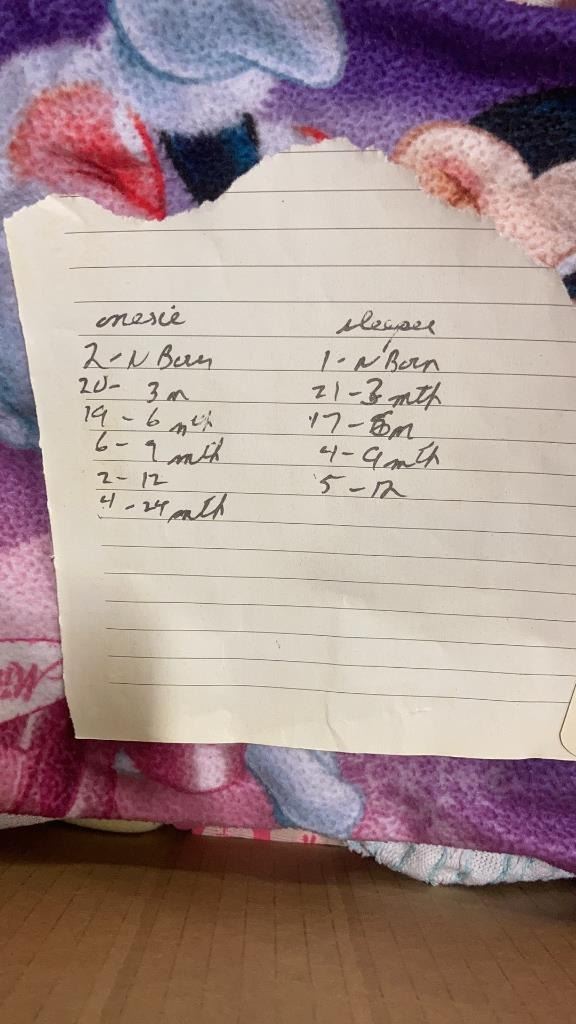 onesie
2-N Born
20- 3m
19-6 mth
6-9 mth
2-12
4-24 mth
sleeper
1-N Born
21-3 mth
17-6m
4-9 mth
5-12